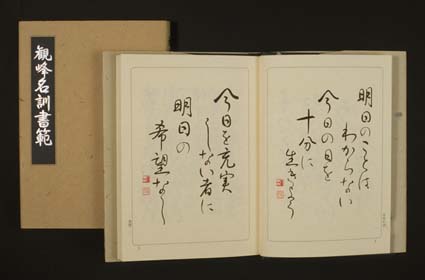 観峰名訓書範
明日のことは
わからない
今日の日を
十分に
生きよう
今日を充実
しない者に
明日の
希望なし